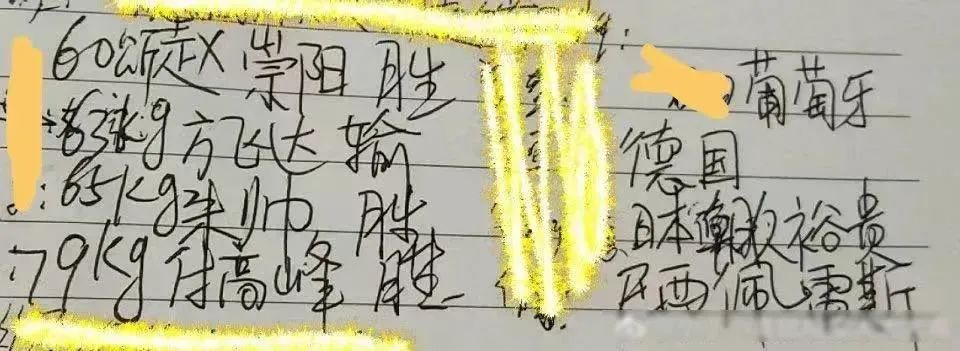 60 X 崇阳 胜
63kg方飞达 输
65kg朱帅 胜
79kg付高峰 胜
葡萄牙
德国
日本 裕贵
西佩雷斯